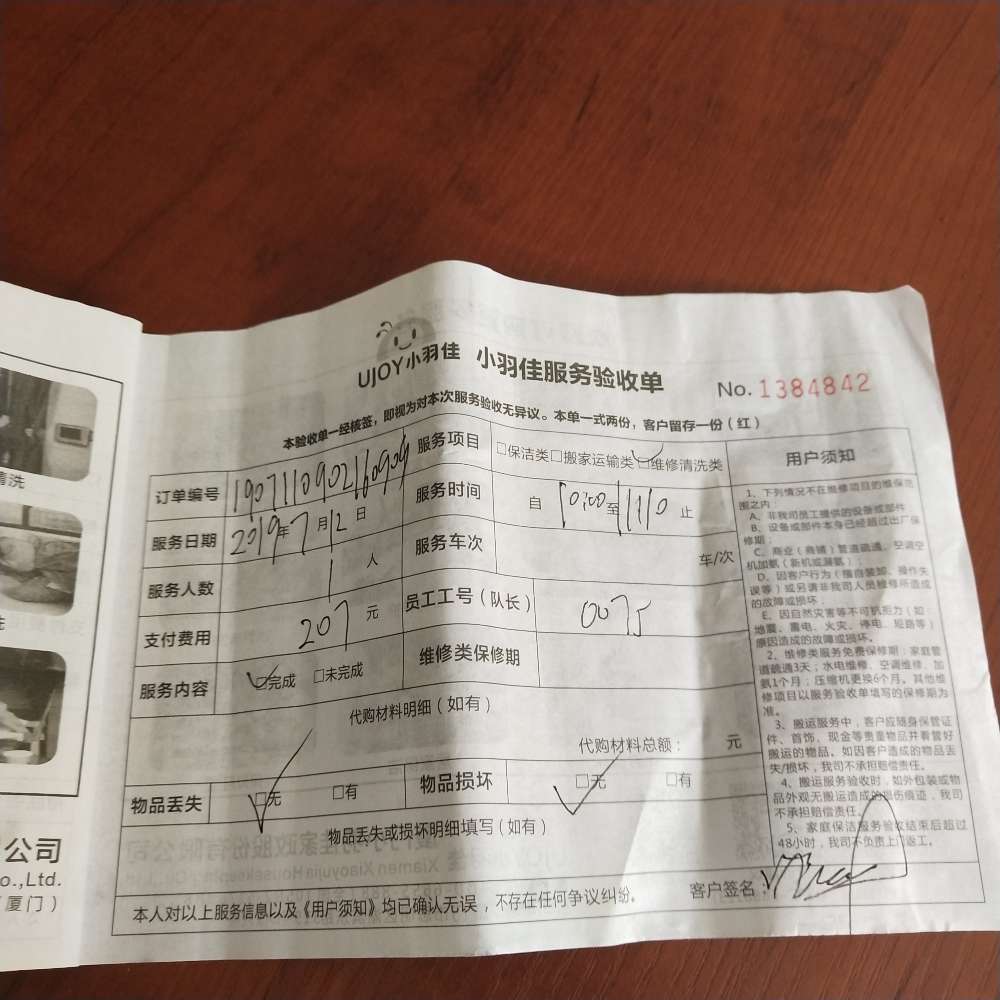 UJOY小羽佳 小羽佳服务验收单 No.1384842
本验收单一经核签，即视为对本次服务验收无异议。本单一式两份，客户留存一份（红）
订单编号 服务项目 □保洁类□搬家运输类□维修清洗类
服务日期 2019年7月12日 服务时间 自 10:00至11:10止
服务人数 1人 服务车次 车/次
支付费用 207元 员工工号（队长） 0075
服务内容 □完成 □未完成 维修类保修期
代购材料明细（如有）
代购材料总额： 元
物品丢失 □无 □有 物品损坏 □无 □有
物品丢失或损坏明细填写（如有）
客户签名：
本人对以上服务信息以及《用户须知》均已确认无误，不存在任何争议纠纷。
用户须知
1、下列情况不在维修项目的维保范
围之内：
A、非我司员工提供的设备或部件
B、设备或部件本身已经超过出厂保
修期；
C、商业（商铺）管道疏通、空调空
机加氨（新机或漏氨）；
D、因客户行为（擅自装卸、操作失
误等）或另请非我司人员检修所造成
的故障或损坏；
E、因自然灾害等不可抗拒力（如：
地震、雷电、火灾、停电、短路等）
原因造成的故障或损坏。
2、维修类服务免费保修期：家庭管
道疏通3天；水电维修、空调维修、加
氨1个月；压缩机更换6个月。其他维
修项目以服务验收单填写的保修期为
准。
3、搬运服务中，客户应随身保管证
件、首饰、现金等贵重物品并看管好
搬运的物品。如因客户造成的物品丢
失/损坏，我司不承担赔偿责任。
4、搬运服务验收时，如外包装或物
品外观无搬运造成的损伤痕迹，我司
不承担赔偿责任。
5、家庭保洁服务验收结束后超过
48小时，我司不负责上门返工。
清洗
洗
公司
o.,Ltd.
厦门）